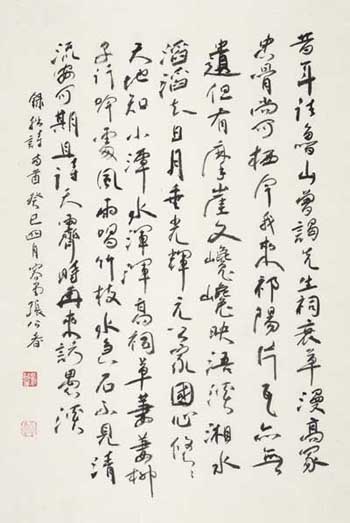 昔年过鲁山曾谒先生祠衰草漫高冢
忠骨尚可栖今我来祁阳片瓦亦无
遗但有摩崖文巉巉映浯溪湘水
滔滔去日月垂光辉元公家国心悠悠
天地知小潭水浑浑高祠草萋萋柳
子许呼云风雨唱竹枝水急石不见清
流安可期且待天霁时再来访愚溪
录 诗两首癸巳四月 张公者